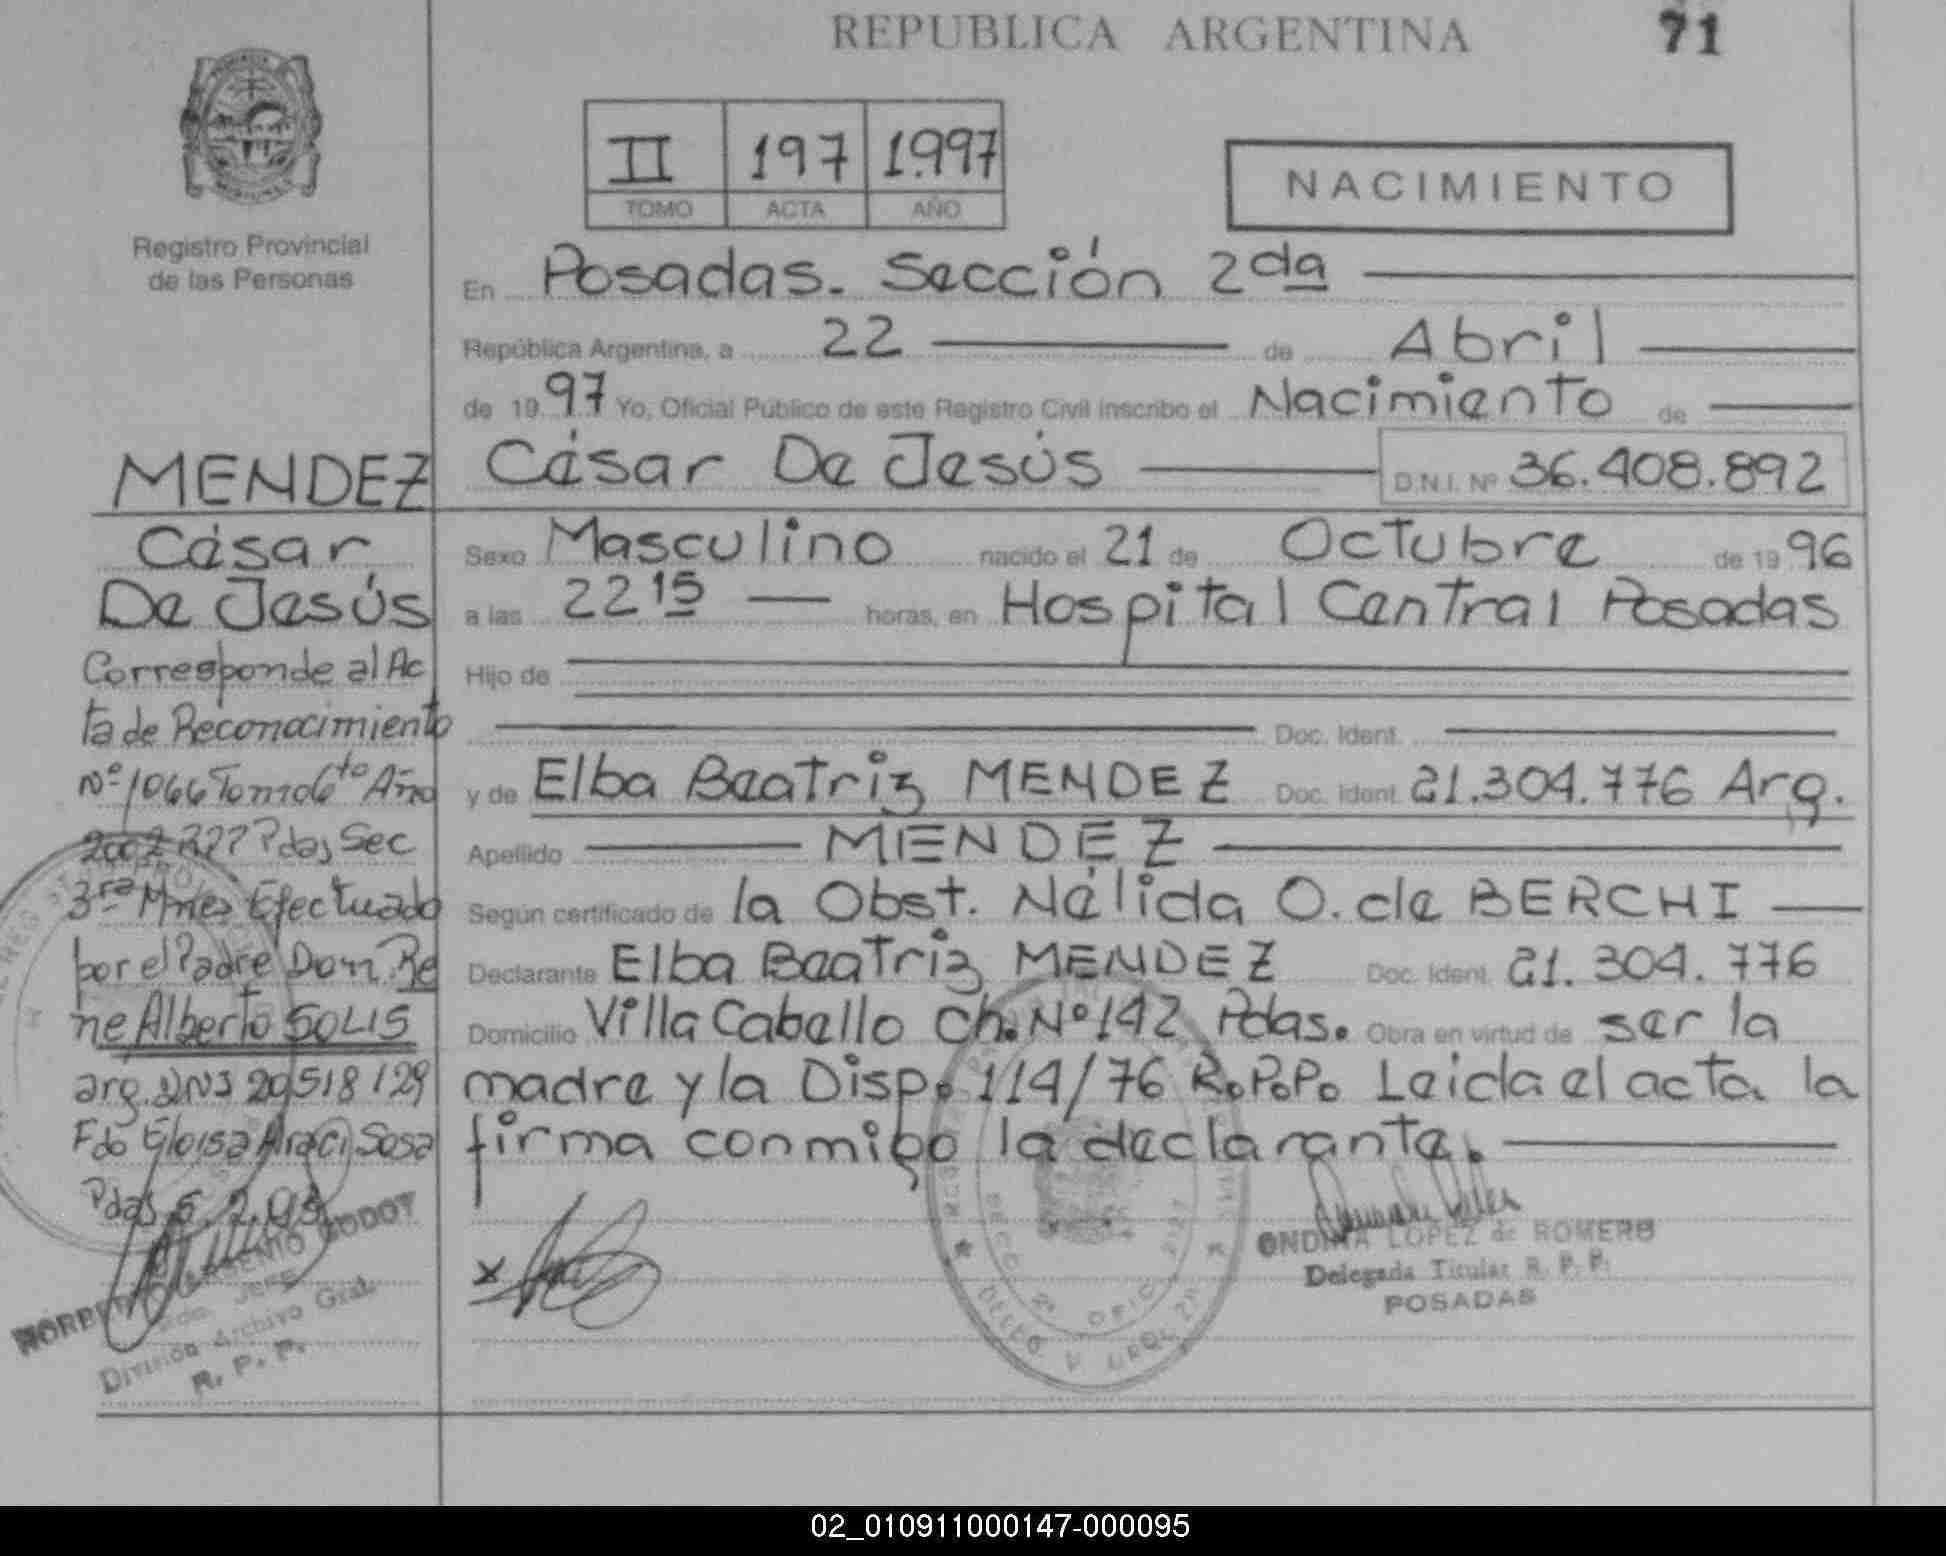 REPUBLICA ARGENTINA
71
II 197 1.997
TOMO ACTA AÑO
NACIMIENTO
Registro Provincial
de las Personas
En Posadas. Sección 2da
República Argentina, a 22 de Abril
de 1997 Yo, Oficial Público de este Registro Civil inscribo el Nacimiento de
César De Jesús D.N.I. Nº 36.408.892
Sexo Masculino nacido el 21 de Octubre de 1996
a las 22 15 horas, en Hospital Central Posadas
Hijo de
Doc. Ident.
y de Elba Beatriz MENDEZ Doc. Ident. 21.304.776 Arg.
Apellido MENDEZ
Según certificado de la Obst. Nélida O. de BERCHI
Declarante Elba Beatriz MENDEZ Doc. Ident. 21.304.776
Domicilio Villa Caballo Ch. Nº 142 Pdas. Obra en virtud de ser la
madre y la Disp. 114/76 R.P.P. Leida el acta la
firma conmigo la declarante.
MENDEZ
César
De Jesús
Corresponde al Ac
ta de Reconocimiento
Nº 1066 Tomo 6to Año
2002 Pdas Sec
3ra Mnes Efectuado
por el Padre Dom. Re
ne Alberto SOLIS
arg. DNI 20518129
Fdo Eloisa Araci Sosa
Pdas
GODOY
División Archivo Gral.
R. P. P.
x
ONDINA LOPEZ de ROMERO
Delegada Titular R. P. P.
POSADAS
02_010911000147-000095